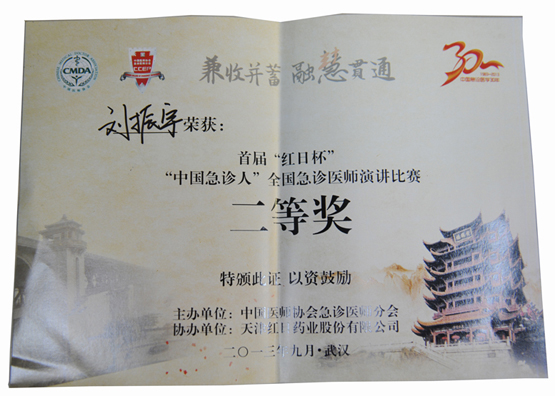 CMDA
兼收并蓄 融慧贯通
30
刘振宇荣获：
首届“红日杯”
“中国急诊人”全国急诊医师演讲比赛
二等奖
特颁此证 以资鼓励
主办单位：中国医师协会急诊医师分会
协办单位：天津红日药业股份有限公司
二〇一三年九月·武汉